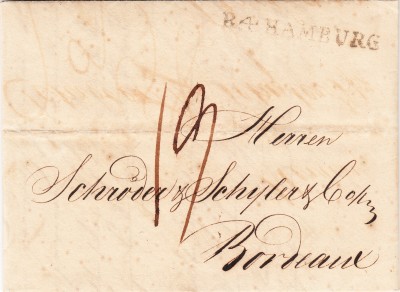 R.4. HAMBURG
19
Herren
Schröder & Schyler & Co
Bordeaux